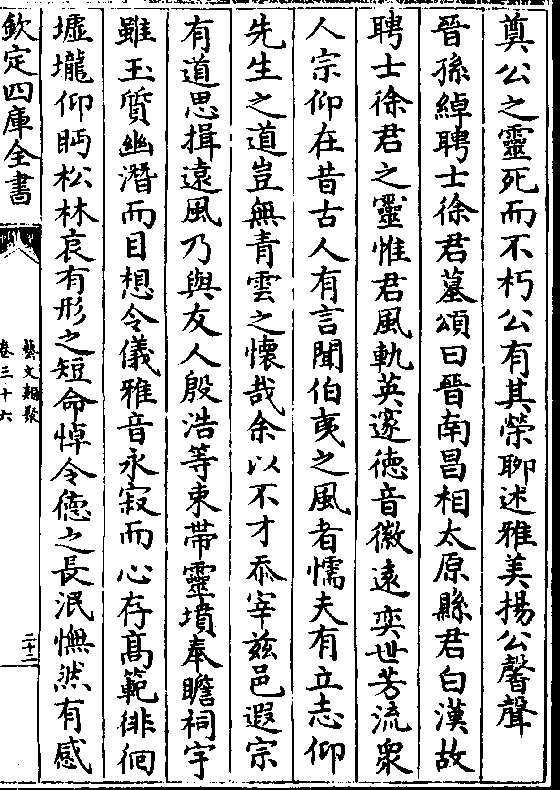 奠公之靈死而不朽公有其榮聊述雅美揚公馨聲
晉孫綽聘士徐君墓頌曰晉南昌相太原縣君白漢故
聘士徐君之靈惟君風軌英邃徳音徽逺奕世芳流衆
人宗仰在昔古人有言聞伯夷之風者懦夫有立志仰
先生之道豈無青雲之懐哉余以不才忝宰兹邑遐宗
有道思揖遠風乃與友人殷浩等束帶靈墳奉瞻祠宇
雖玉質幽潛而目想令儀雅音永寂而心存髙範徘徊
墟壠仰眄松林哀有形之短命悼令徳之長泯憮然有感
欽定四庫全書
藝文類聚
卷三十六
二十二